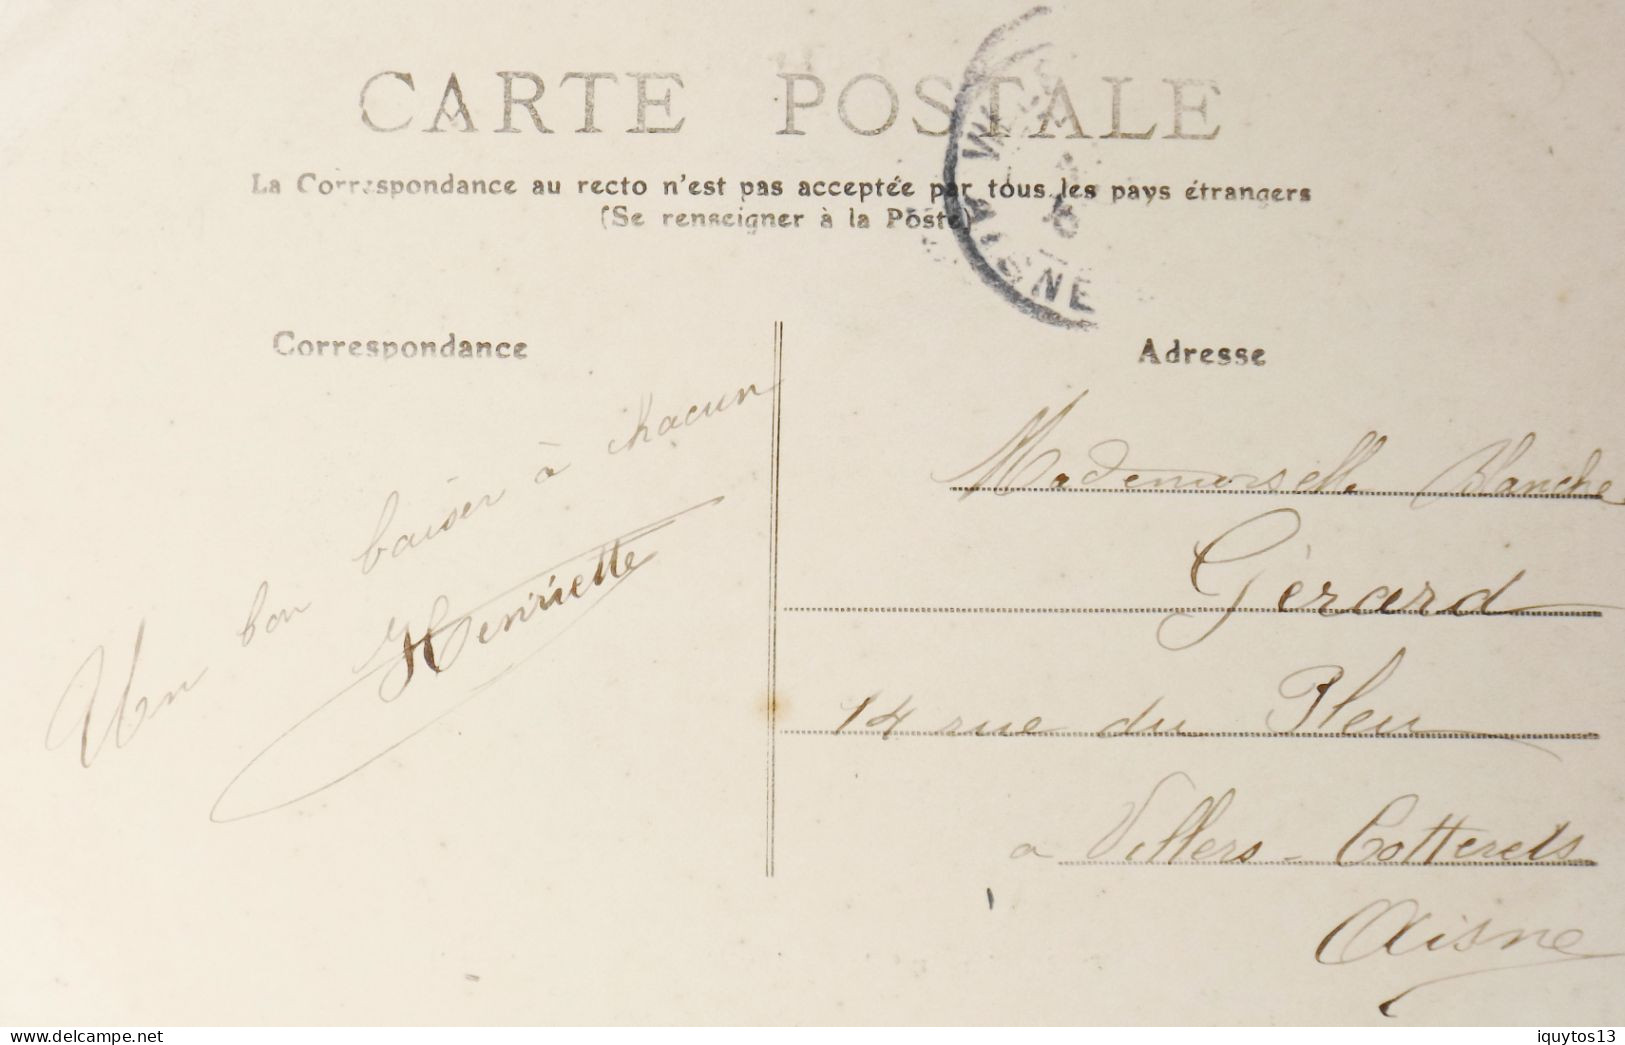 CARTE POSTALE
La Correspondance au recto n'est pas acceptée par tous les pays étrangers
(Se renseigner à la Poste)
AISNE
Correspondance
Un bon baiser à chacun
Henriette
Adresse
Mademoiselle Blanche
Gérard
14 rue du Pleu
a Villers-Cotterets
Aisne
www.delcampe.net
iquytos13